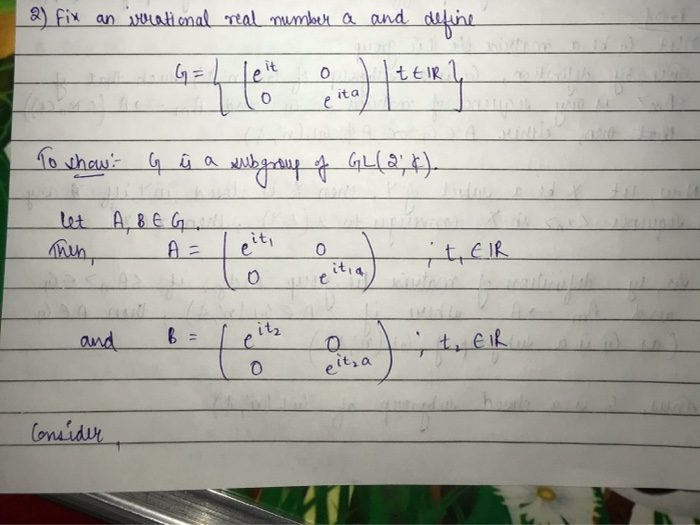 2) Fix an irrational real number a and define
G = { ( e^{it} 0 
0 e^{ita} ) | t ∈ ℝ }
To show:- G is a subgroup of GL(2; ℂ).
Let A, B ∈ G.
Then, A = ( e^{it₁} 0
0 e^{it₁a} ) ; t₁ ∈ ℝ
and B = ( e^{it₂} 0
0 e^{it₂a} ) ; t₂ ∈ ℝ
Consider,